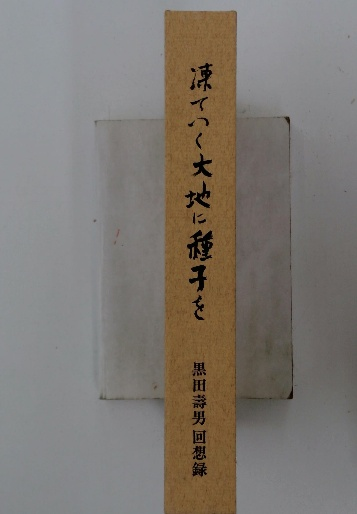 凍てつく大地に種子を
黒田壽男回想録